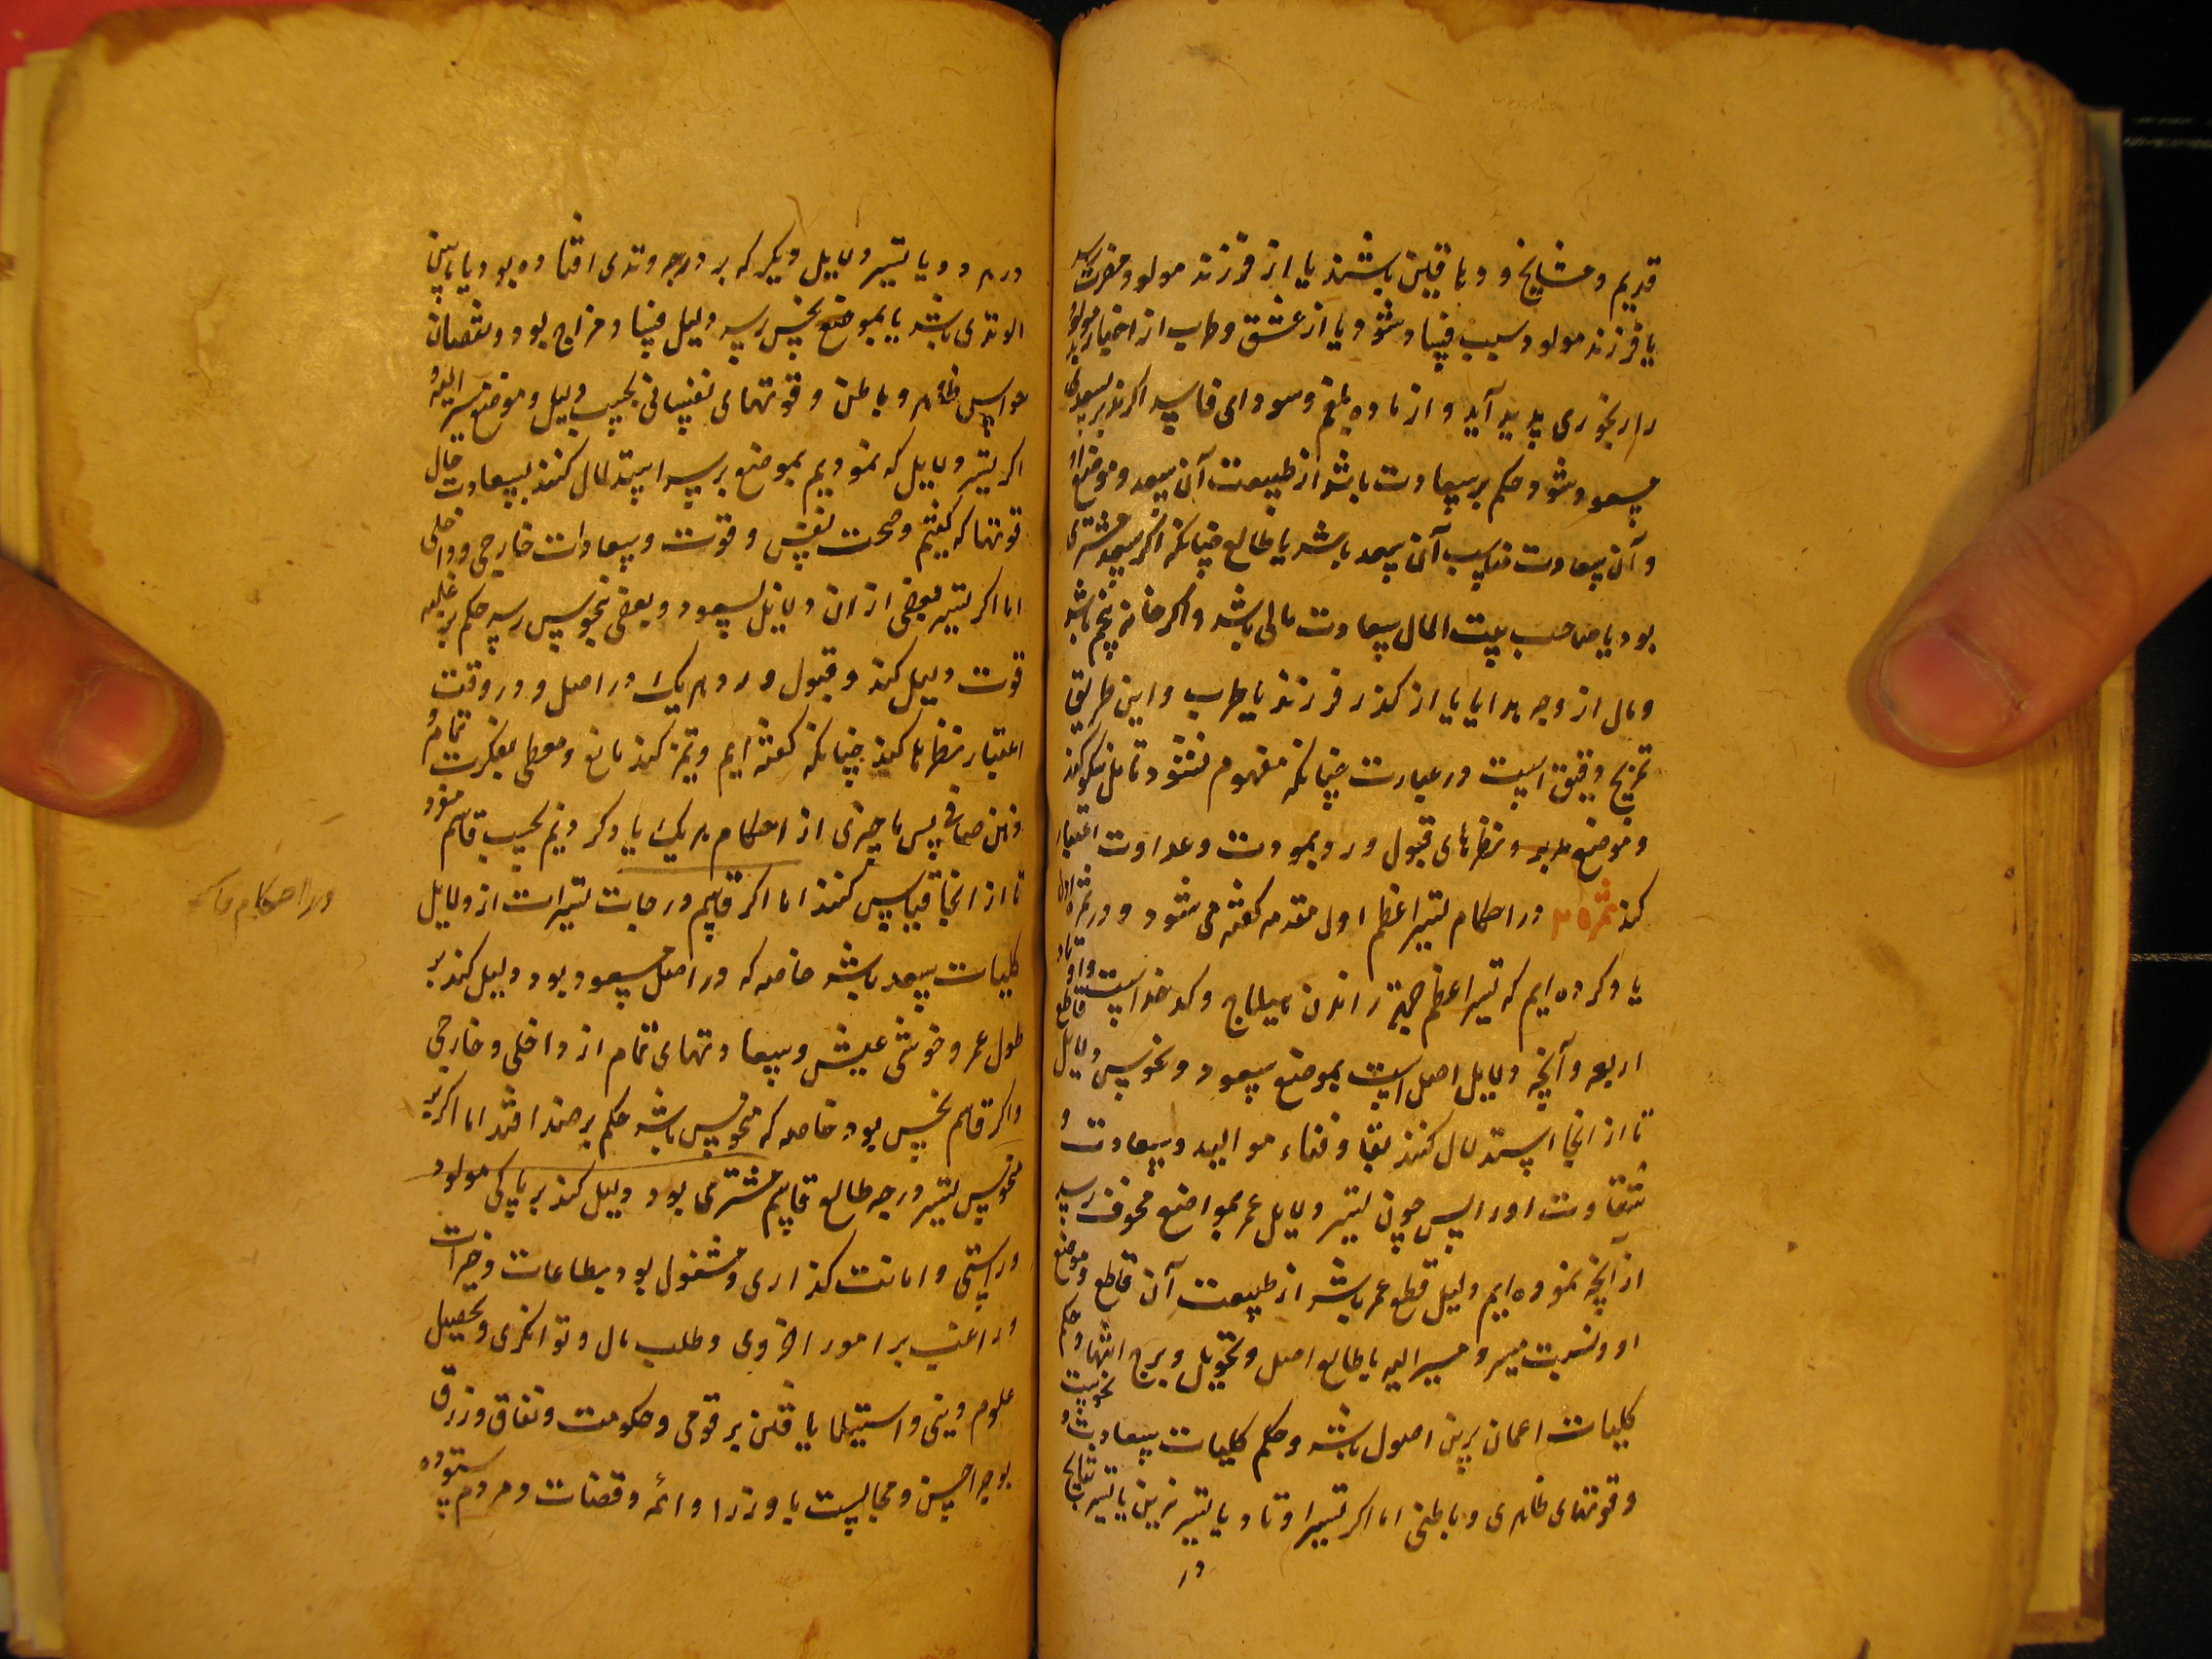 قدیم و مشایخ و دباقین باشند یا از فرزند مولود مضرت رسد
یا فرزند مولود سبب فساد شود و یا از عشق و طرب از اختیار مولود
را رنجوری پدید آید و از ماده بلغم و سودای فاسد اکر مدبر بسعدی
مسعود شود حکم بر سعادت باشد از طبیعت آن سعد و موضع او
و آن سعادت مناسب آن سعد باشد یا طالع چنانکه اکر سعد مشتری
بود یا صاحب بیت المال سعادت مالی باشد و اکر خانه پنجم باشد
و مال از وجه هدایا یا از کذر فرزند یا طرب و این طریق
تمزیج دقیق است در عبارت چنانکه مفهوم نشود تامل نیکو کند
و موضع مدبر و نظرهای قبول و رد بمودت و عداوت اعتبار
کند ثمره در احکام تسیر اعظم اول مقدمه کفته می شود و در ثمره اول
یاد کرده ایم که تسیر اعظم جهة راندن هیلاج و کدخداست و اوتاد
اربعه و آنچه دلایل اصل است بموضع سعود و نحوس و دلایل قاطع
تا از انجا استدلال کنند بقا و فناء موالید و سعادت و
شقاوت او را پس چون تسیر دلایل عمر بمواضع مخوف رسد
از آنچه نموده ایم دلیل قطع عمر باشد از طبیعت آن قاطع و موضع
او و نسبت مسیر و مسیر الیه با طالع اصل و تحویل و برج انتها و حکم
کلیات اعمار برین اصول باشد و حکم کلیات سعادت و نحوست
و قوتهای ظاهری و باطنی اما اکر تسیر اوتاد یا تسیر نیرین یا تسیر
در
در هر دو یا تسیر دلایل دیکر که بر درجه وتدی افتاده بود یا مابین
الوتدی باشد یا بموضع نحس رسد دلیل فساد مزاج بود و نقصان
حواس ظاهر و باطن و قوتهای نفسانی بحسب دلیل و موضع مسیر الیه و
اکر تسیر دلایل که نمودیم بموضع بر سد استدلال کنند بسعادت حال
قوتها که کفتیم و صحت نفس و قوت و سعادات خارجی و داخلی
اما اکر تسیر بعضی از ان دلایل بسعود و بعضی بنحوس رسد حکم بر غلبه
قوت دلیل کند و قبول و رد هر یک در اصل و در وقت
اعتبار نظرها کند چنانکه کفته ایم و تمیز کند مانع و معطی بفکرت تمام و
ذهن صافی پس ما چیزی از احکام هر یک یاد کردیم بحسب قاسم مفرد
تا از انجا قیاس کنند اما اکر قاسم درجات تسیرات از دلایل
کلیات سعد باشد خاصه که در اصل مسعود بود دلیل کند بر
طول عمر و خوشی عیش و سعادتهای تمام از داخلی و خارجی
و اکر قاسم نحس بود خاصه که منحوس باشد حکم بر ضد افتد اما اکر بر
منحوس تسیر درجه طالع قاسم مشتری بود دلیل کند بر پاکی مولود
و راستی و امانت کذاری و مشغول بود بطاعات و خیرات
و راغب بر امور اخروی و طلب مال و توانکری و تحصیل
علوم دینی و استیلا یافتن بر قومی و حکومت و نفاق و زرق
بوجه احسن و مجالست با وزرا و ائمه و قضات و مردم ستوده
در احکام قاسم